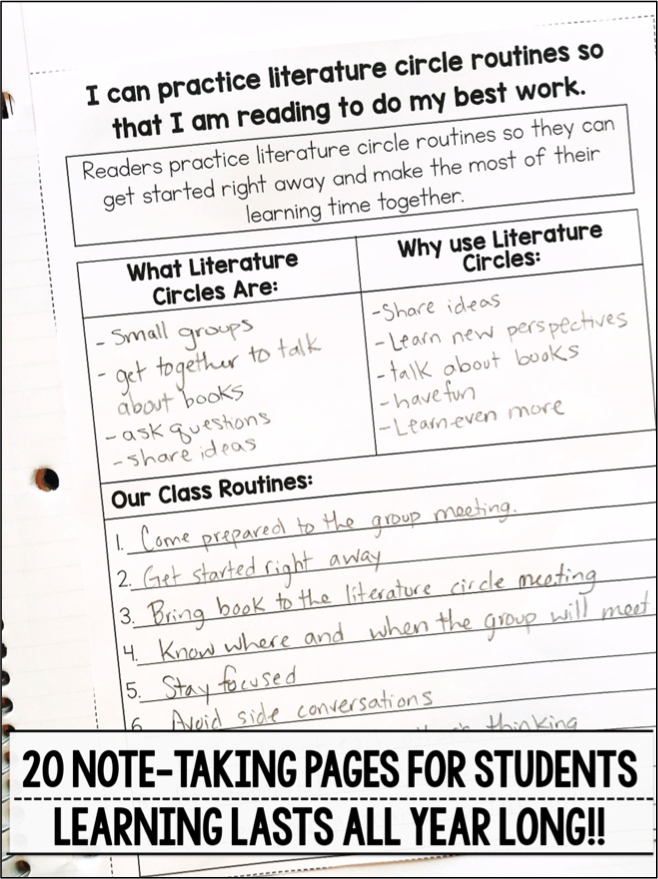 I can practice literature circle routines so
that I am reading to do my best work.
Readers practice literature circle routines so they can
get started right away and make the most of their
learning time together.
What Literature
Circles Are:
- Small groups
- get together to talk
about books
- ask questions
- share ideas
Why use Literature
Circles:
- Share ideas
- Learn new perspectives
- talk about books
- have fun
- Learn even more
Our Class Routines:
1. Come prepared to the group meeting.
2. Get started right away
3. Bring book to the literature circle meeting
4. Know where and when the group will meet
5. Stay focused
6. Avoid side conversations
thinking
20 NOTE-TAKING PAGES FOR STUDENTS
LEARNING LASTS ALL YEAR LONG!!